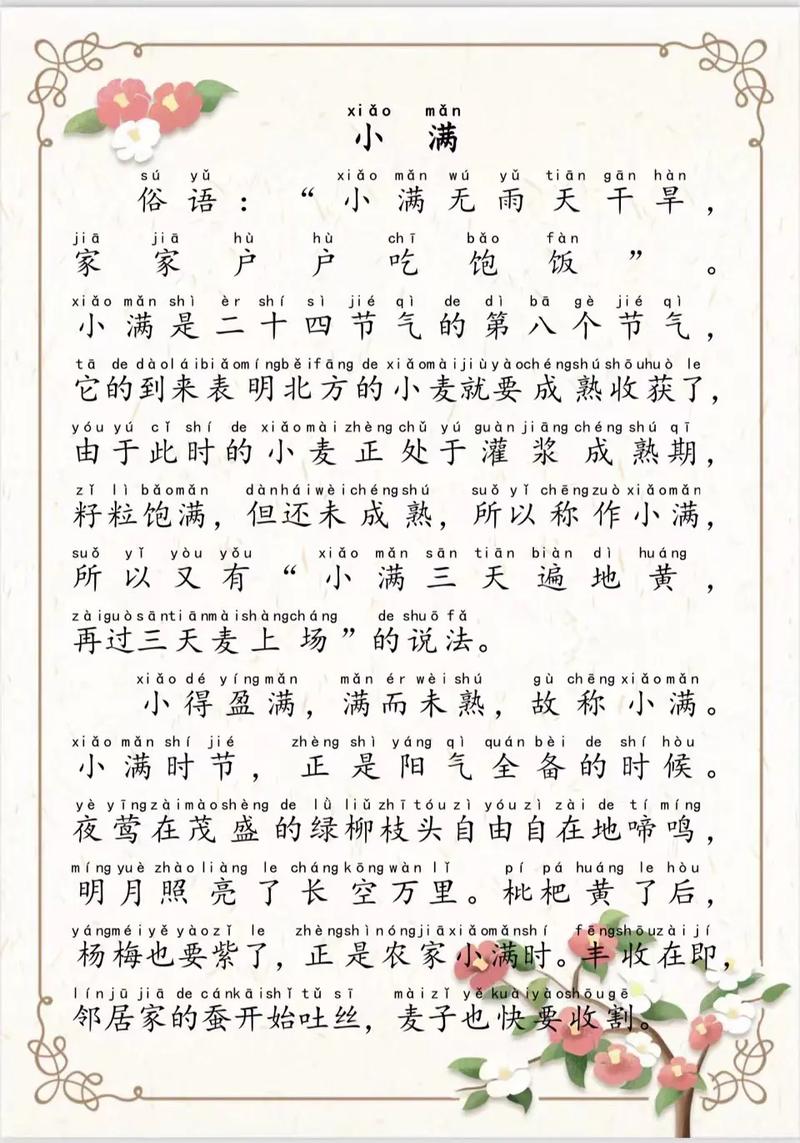 xiǎo mǎn
小 满
sú yǔ xiǎo mǎn wú yǔ tiān gān hàn
俗语：“小满无雨天干旱，
jiā jiā hù hù chī bǎo fàn
家家户户吃饱饭”。
xiǎo mǎn shì èr shí sì jié qì de dì bā gè jié qì
小满是二十四节气的第八个节气，
tā de dào lái biǎo míng běi fāng de xiǎo mài jiù yào chéng shú shōu huò le
它的到来表明北方的小麦就要成熟收获了，
yóu yú cǐ shí de xiǎo mài zhèng chǔ yú guàn jiāng chéng shú qī
由于此时的小麦正处于灌浆成熟期，
zǐ lì bǎo mǎn dàn hái wèi chéng shú suǒ yǐ chēng zuò xiǎo mǎn
籽粒饱满，但还未成熟，所以称作小满，
suǒ yǐ yòu yǒu xiǎo mǎn sān tiān biàn dì huáng
所以又有“小满三天遍地黄，
zài guò sān tiān mài shàng cháng de shuō fǎ
再过三天麦上场”的说法。
xiǎo dé yíng mǎn mǎn ér wèi shú gù chēng xiǎo mǎn
小得盈满，满而未熟，故称小满。
xiǎo mǎn shí jié zhèng shì yáng qì quán bèi de shí hòu
小满时节，正是阳气全备的时候。
yè yīng zài mào shèng de lǜ liǔ zhī tóu zì yóu zì zài de tí míng
夜莺在茂盛的绿柳枝头自由自在地啼鸣，
míng yuè zhào liàng le cháng kōng wàn lǐ pí pá huáng le hòu
明月照亮了长空万里。枇杷黄了后，
yáng méi yě yào zǐ le zhèng shì nóng jiā xiǎo mǎn shí fēng shōu zài jí
杨梅也要紫了，正是农家小满时。丰收在即，
lín jū jiā de cán kāi shǐ tǔ sī mài zǐ yě kuài yào shōu gē
邻居家的蚕开始吐丝，麦子也快要收割。